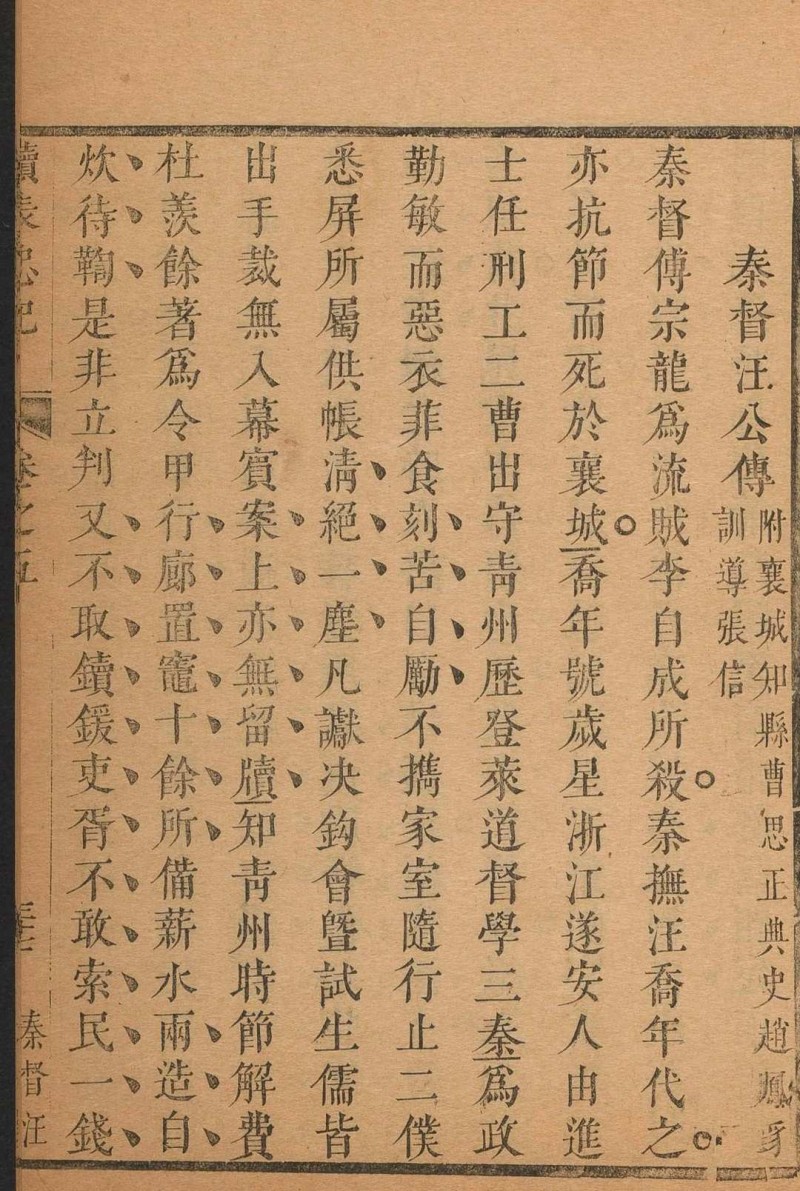 秦督汪公傳
附襄城知縣曹思正典史趙鳳豸
訓導張信
秦督傅宗龍爲流賊李自成所殺秦撫汪喬年代之
亦抗節而死於襄城喬年號歲星浙江遂安人由進
士任刑工二曹出守青州歷登萊道督學三秦爲政
勤敏而惡衣菲食刻苦自勵不攜家室隨行止二僕
悉屏所屬供帳淸絕一塵凡讞决鈎會曁試生儒皆
出手裁無入幕賓案上亦無留牘知青州時節解費
杜羡餘著爲令甲行廊置竈十餘所備薪水兩造自
炊待鞫是非立判又不取鐼鍰吏胥不敢索民一錢
續表忠記
卷之五
秦督汪